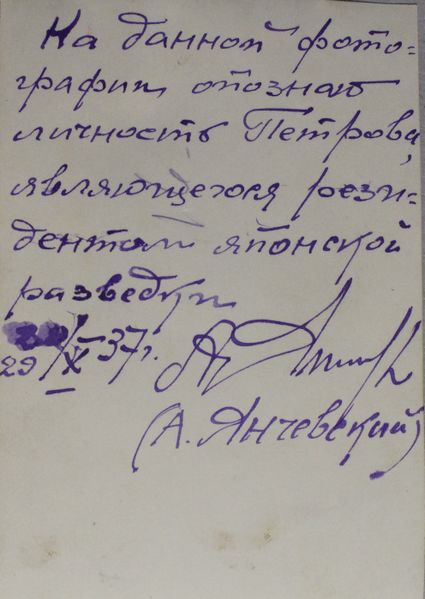 На данной фото=
графии опознаю
личность Петрова,
являющегося рези=
дентом японской
разведки
29/X 37г.
(А. Янчевский)